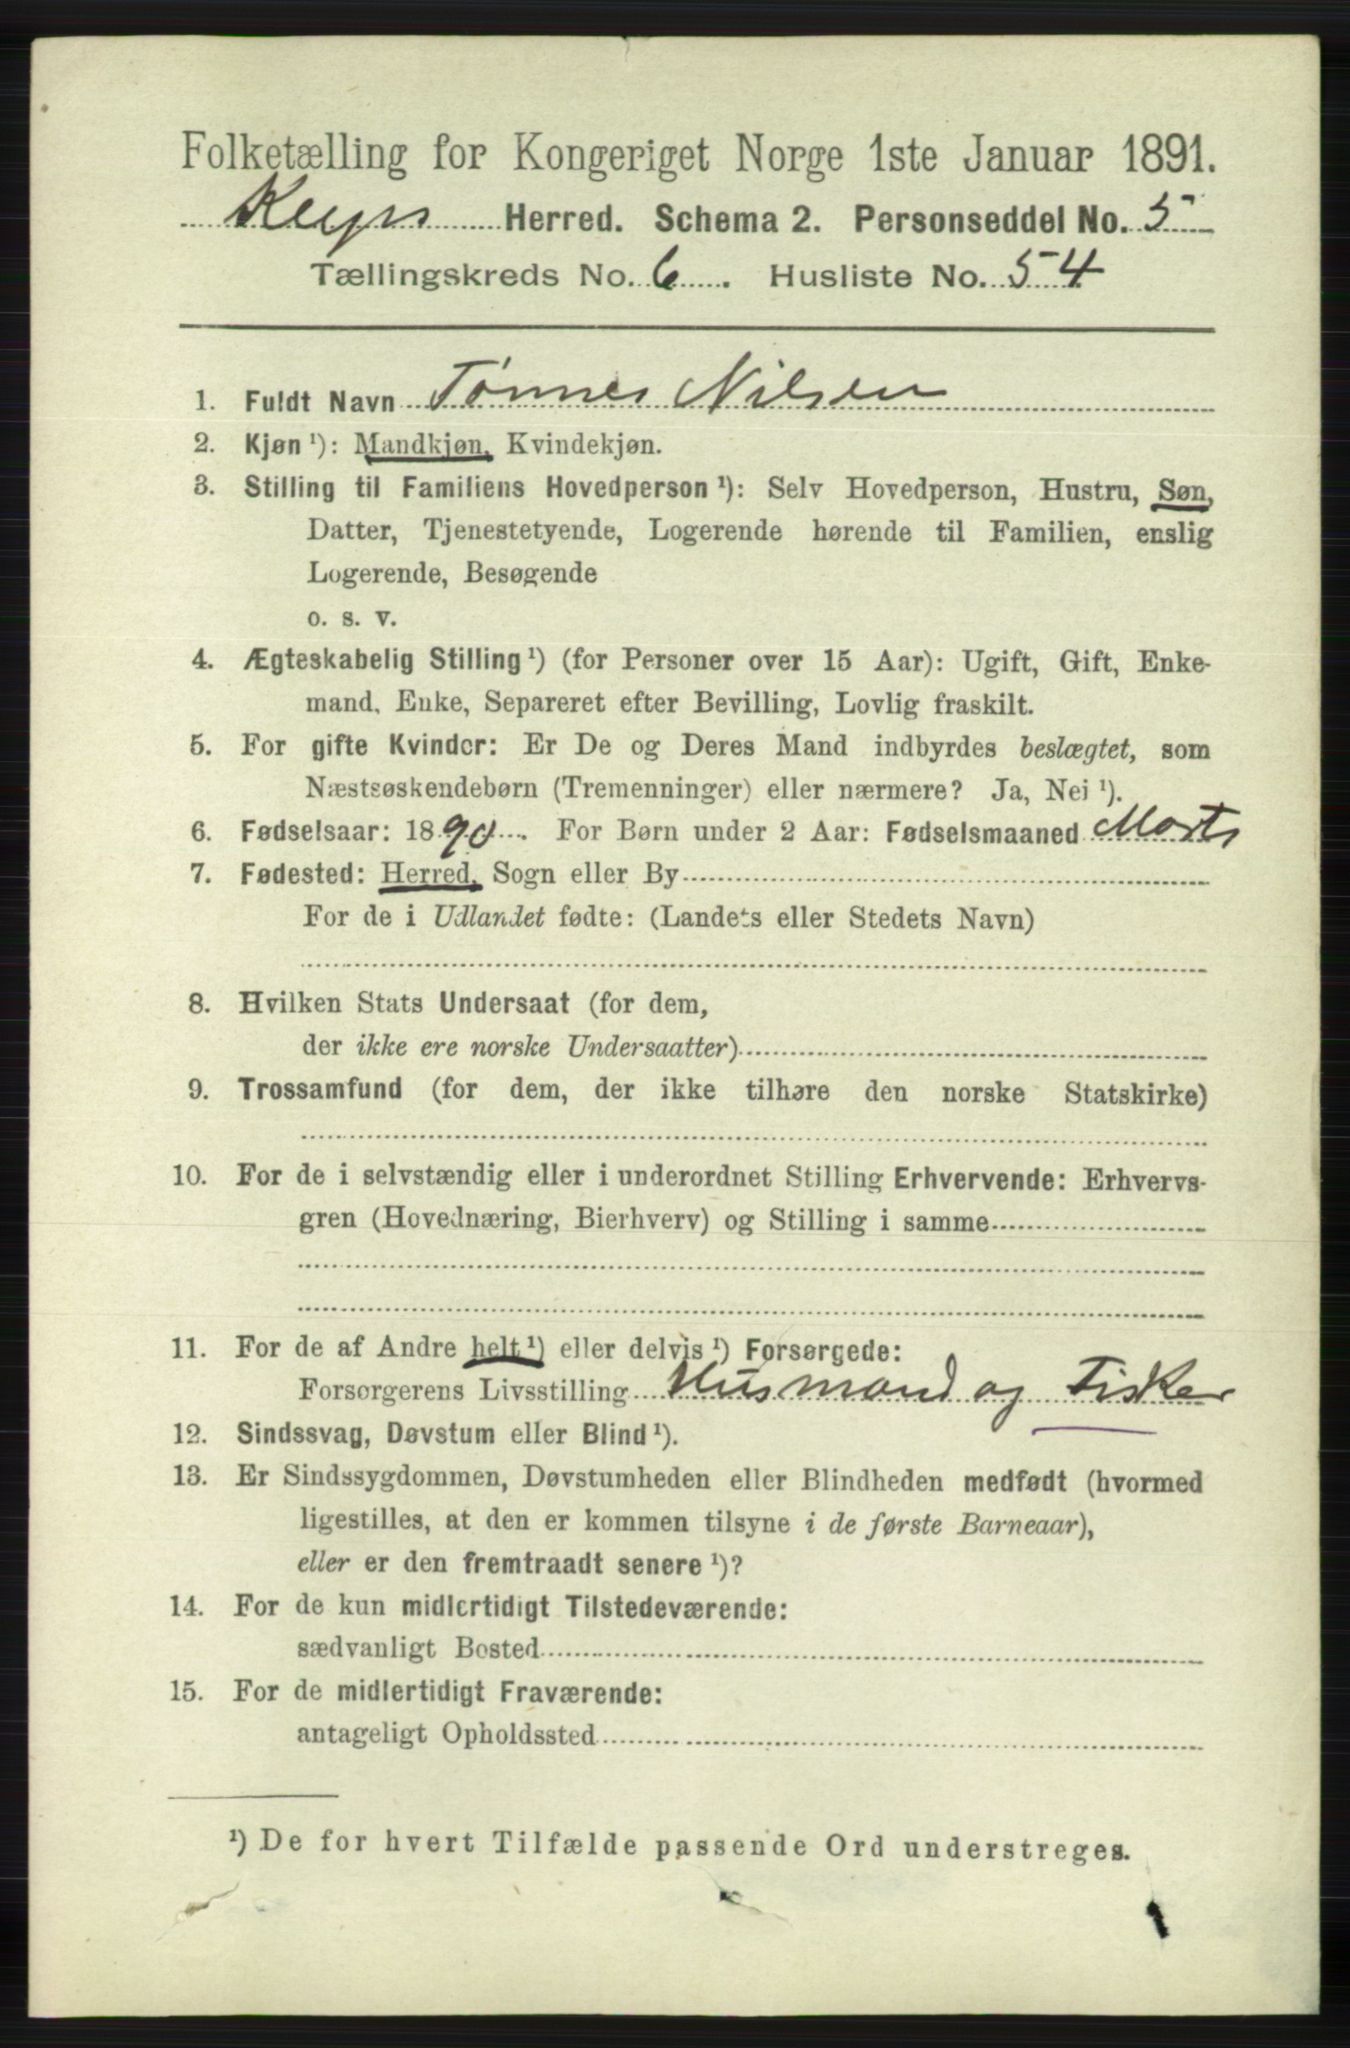 Folketælling for Kongeriget Norge 1ste Januar 1891.
Herred. Schema 2. Personseddel No. 5
Tællingskreds No. 6. Husliste No. 54
1. Fuldt Navn Tønnes Nilsen
2. Kjøn ¹): Mandkjøn, Kvindekjøn.
3. Stilling til Familiens Hovedperson ¹): Selv Hovedperson, Hustru, Søn,
Datter, Tjenestetyende, Logerende hørende til Familien, enslig
Logerende, Besøgende
o. s. v.
4. Ægteskabelig Stilling ¹) (for Personer over 15 Aar): Ugift, Gift, Enke-
mand, Enke, Separeret efter Bevilling, Lovlig fraskilt.
5. For gifte Kvinder: Er De og Deres Mand indbyrdes beslægtet, som
Næstsøskendebørn (Tremenninger) eller nærmere? Ja, Nei ¹).
6. Fødselsaar: 1890. For Børn under 2 Aar: Fødselsmaaned Marts
7. Fødested: Herred, Sogn eller By
For de i Udlandet fødte: (Landets eller Stedets Navn)
8. Hvilken Stats Undersaat (for dem,
der ikke ere norske Undersaatter)
9. Trossamfund (for dem, der ikke tilhøre den norske Statskirke)
10. For de i selvstændig eller i underordnet Stilling Erhvervende: Erhvervs-
gren (Hovednæring, Bierhverv) og Stilling i samme
11. For de af Andre helt ¹) eller delvis ¹) Forsørgede:
Forsørgerens Livsstilling Husmand og Fisker
12. Sindssvag, Døvstum eller Blind ¹).
13. Er Sindssygdommen, Døvstumheden eller Blindheden medfødt (hvormed
ligestilles, at den er kommen tilsyne i de første Barneaar),
eller er den fremtraadt senere ¹)?
14. For de kun midlertidigt Tilstedeværende:
sædvanligt Bosted
15. For de midlertidigt Fraværende:
antageligt Opholdssted
¹) De for hvert Tilfælde passende Ord understreges.